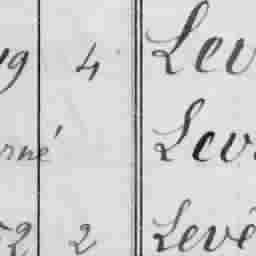 19 4 Lev
rné Lev
52 2 Levê